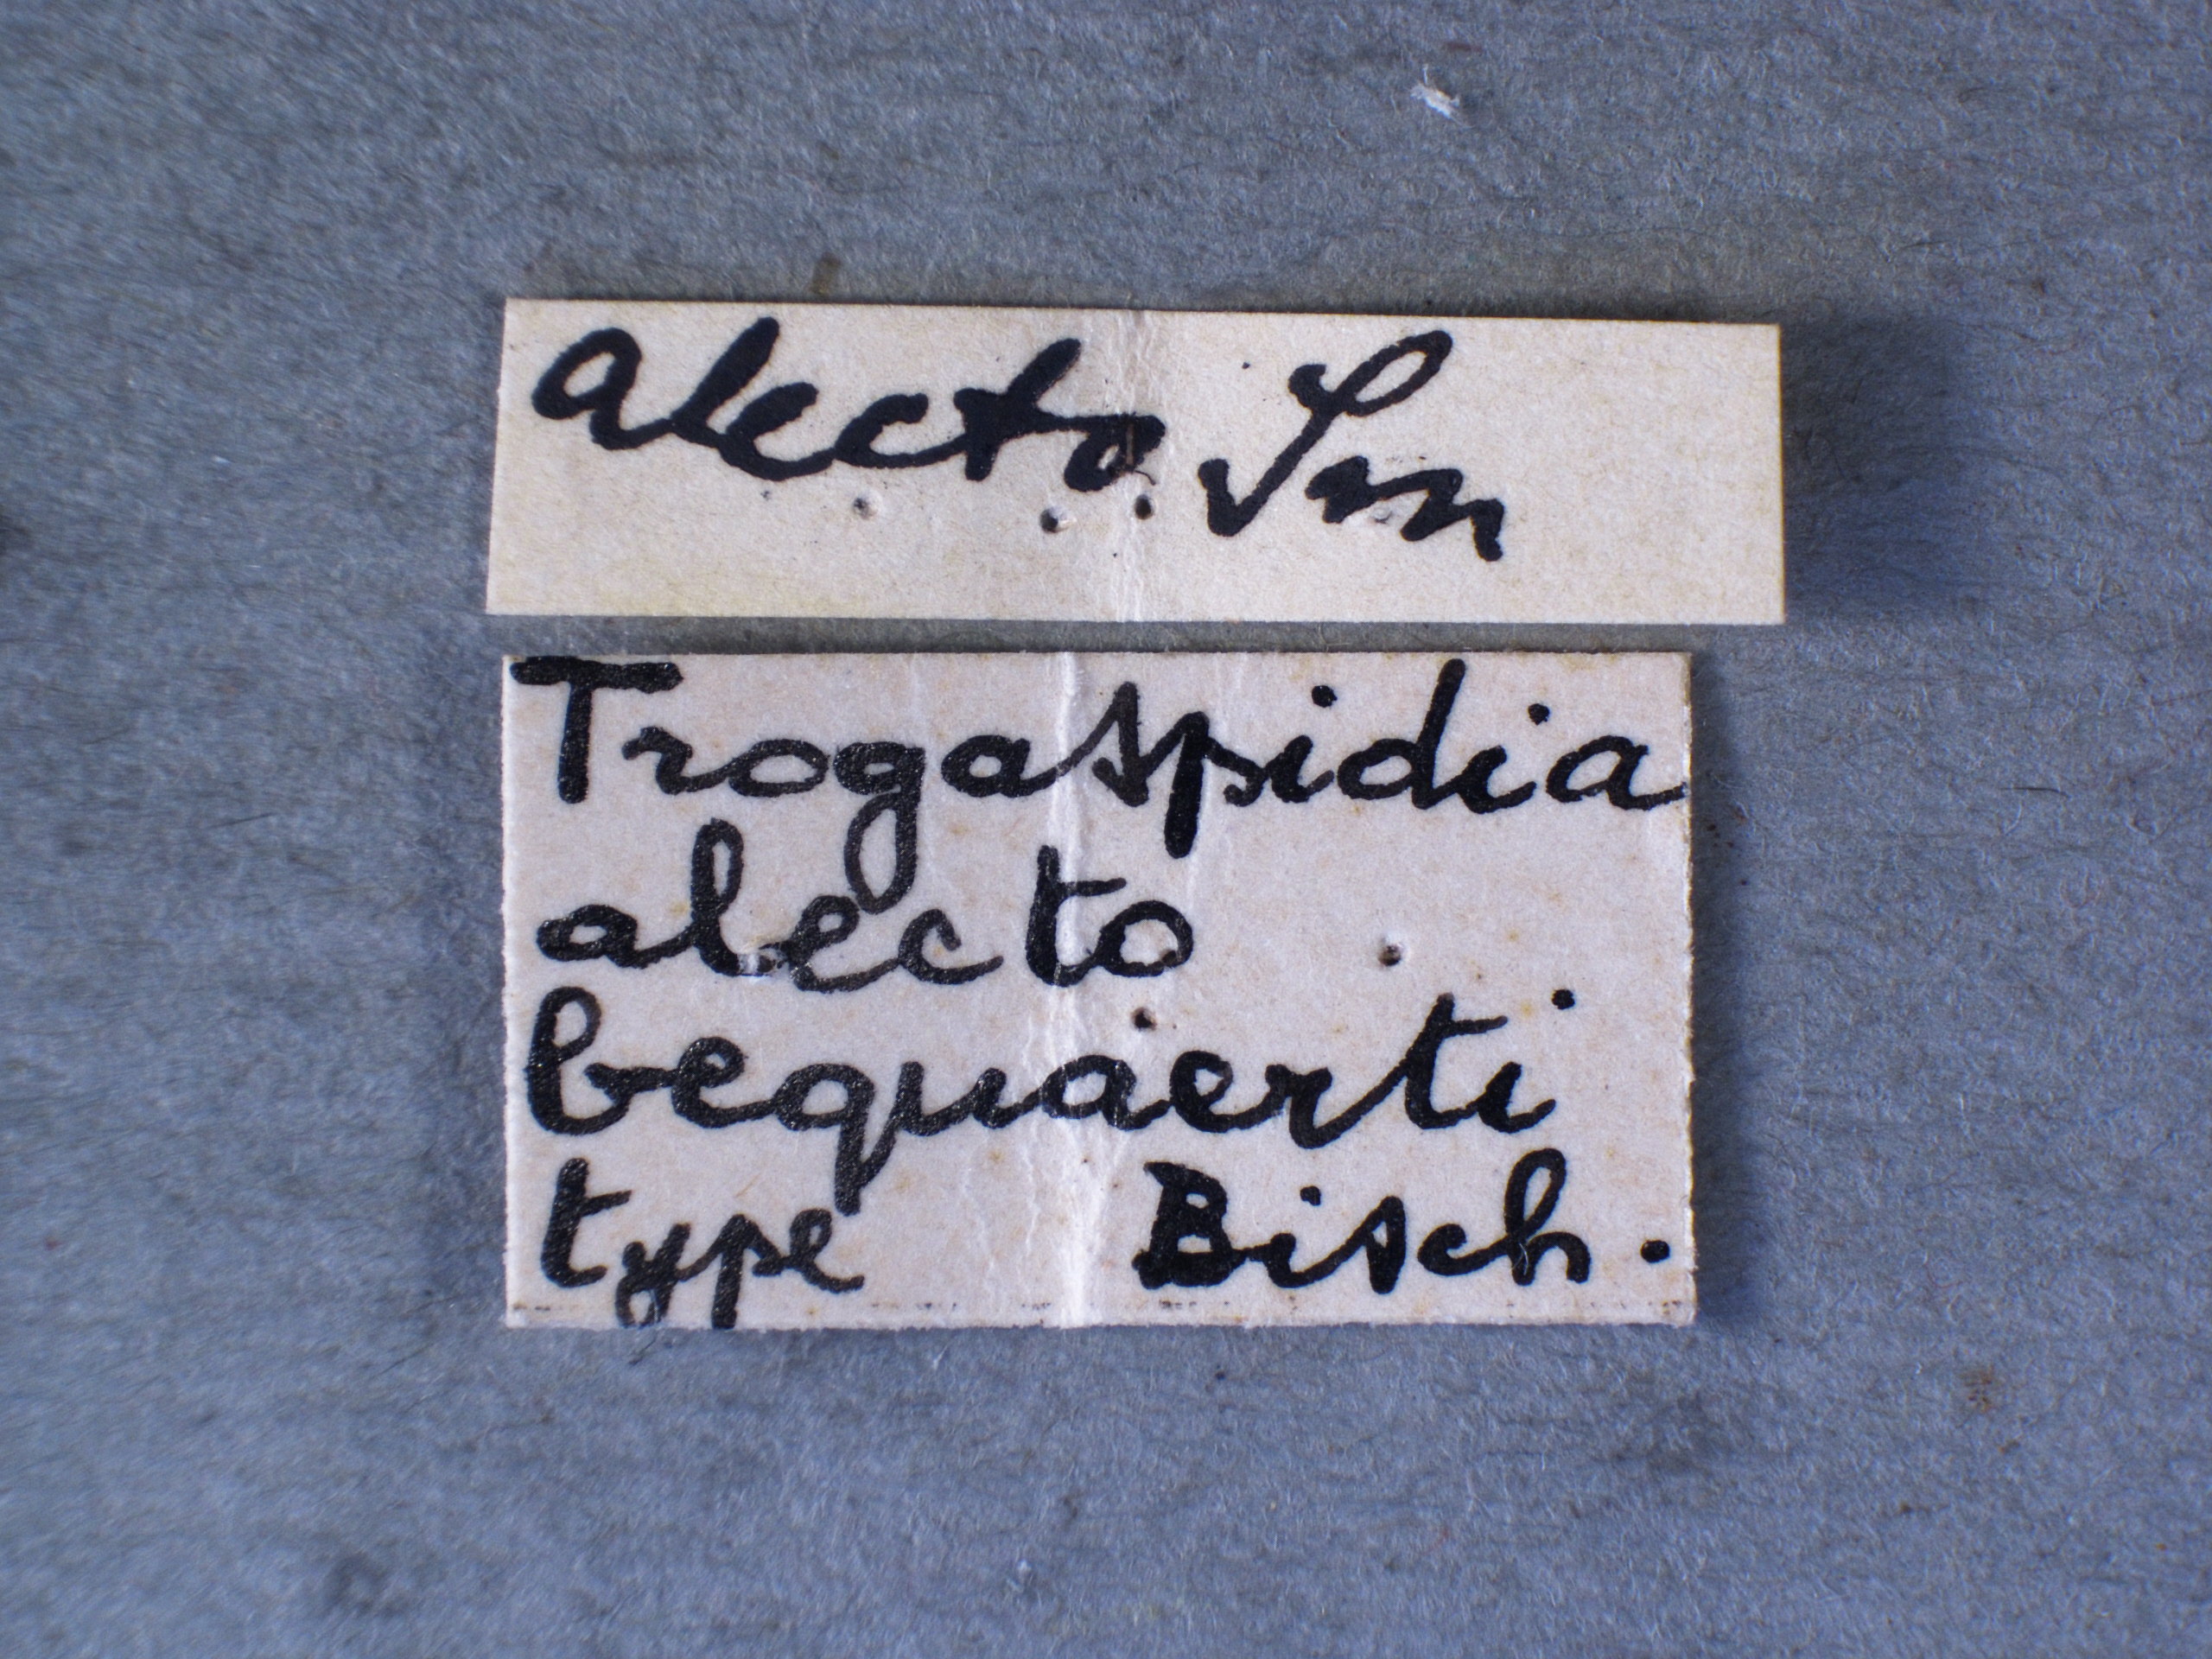 alecto Sm
Trogaspidia
alecto
bequaerti
type Bisch.